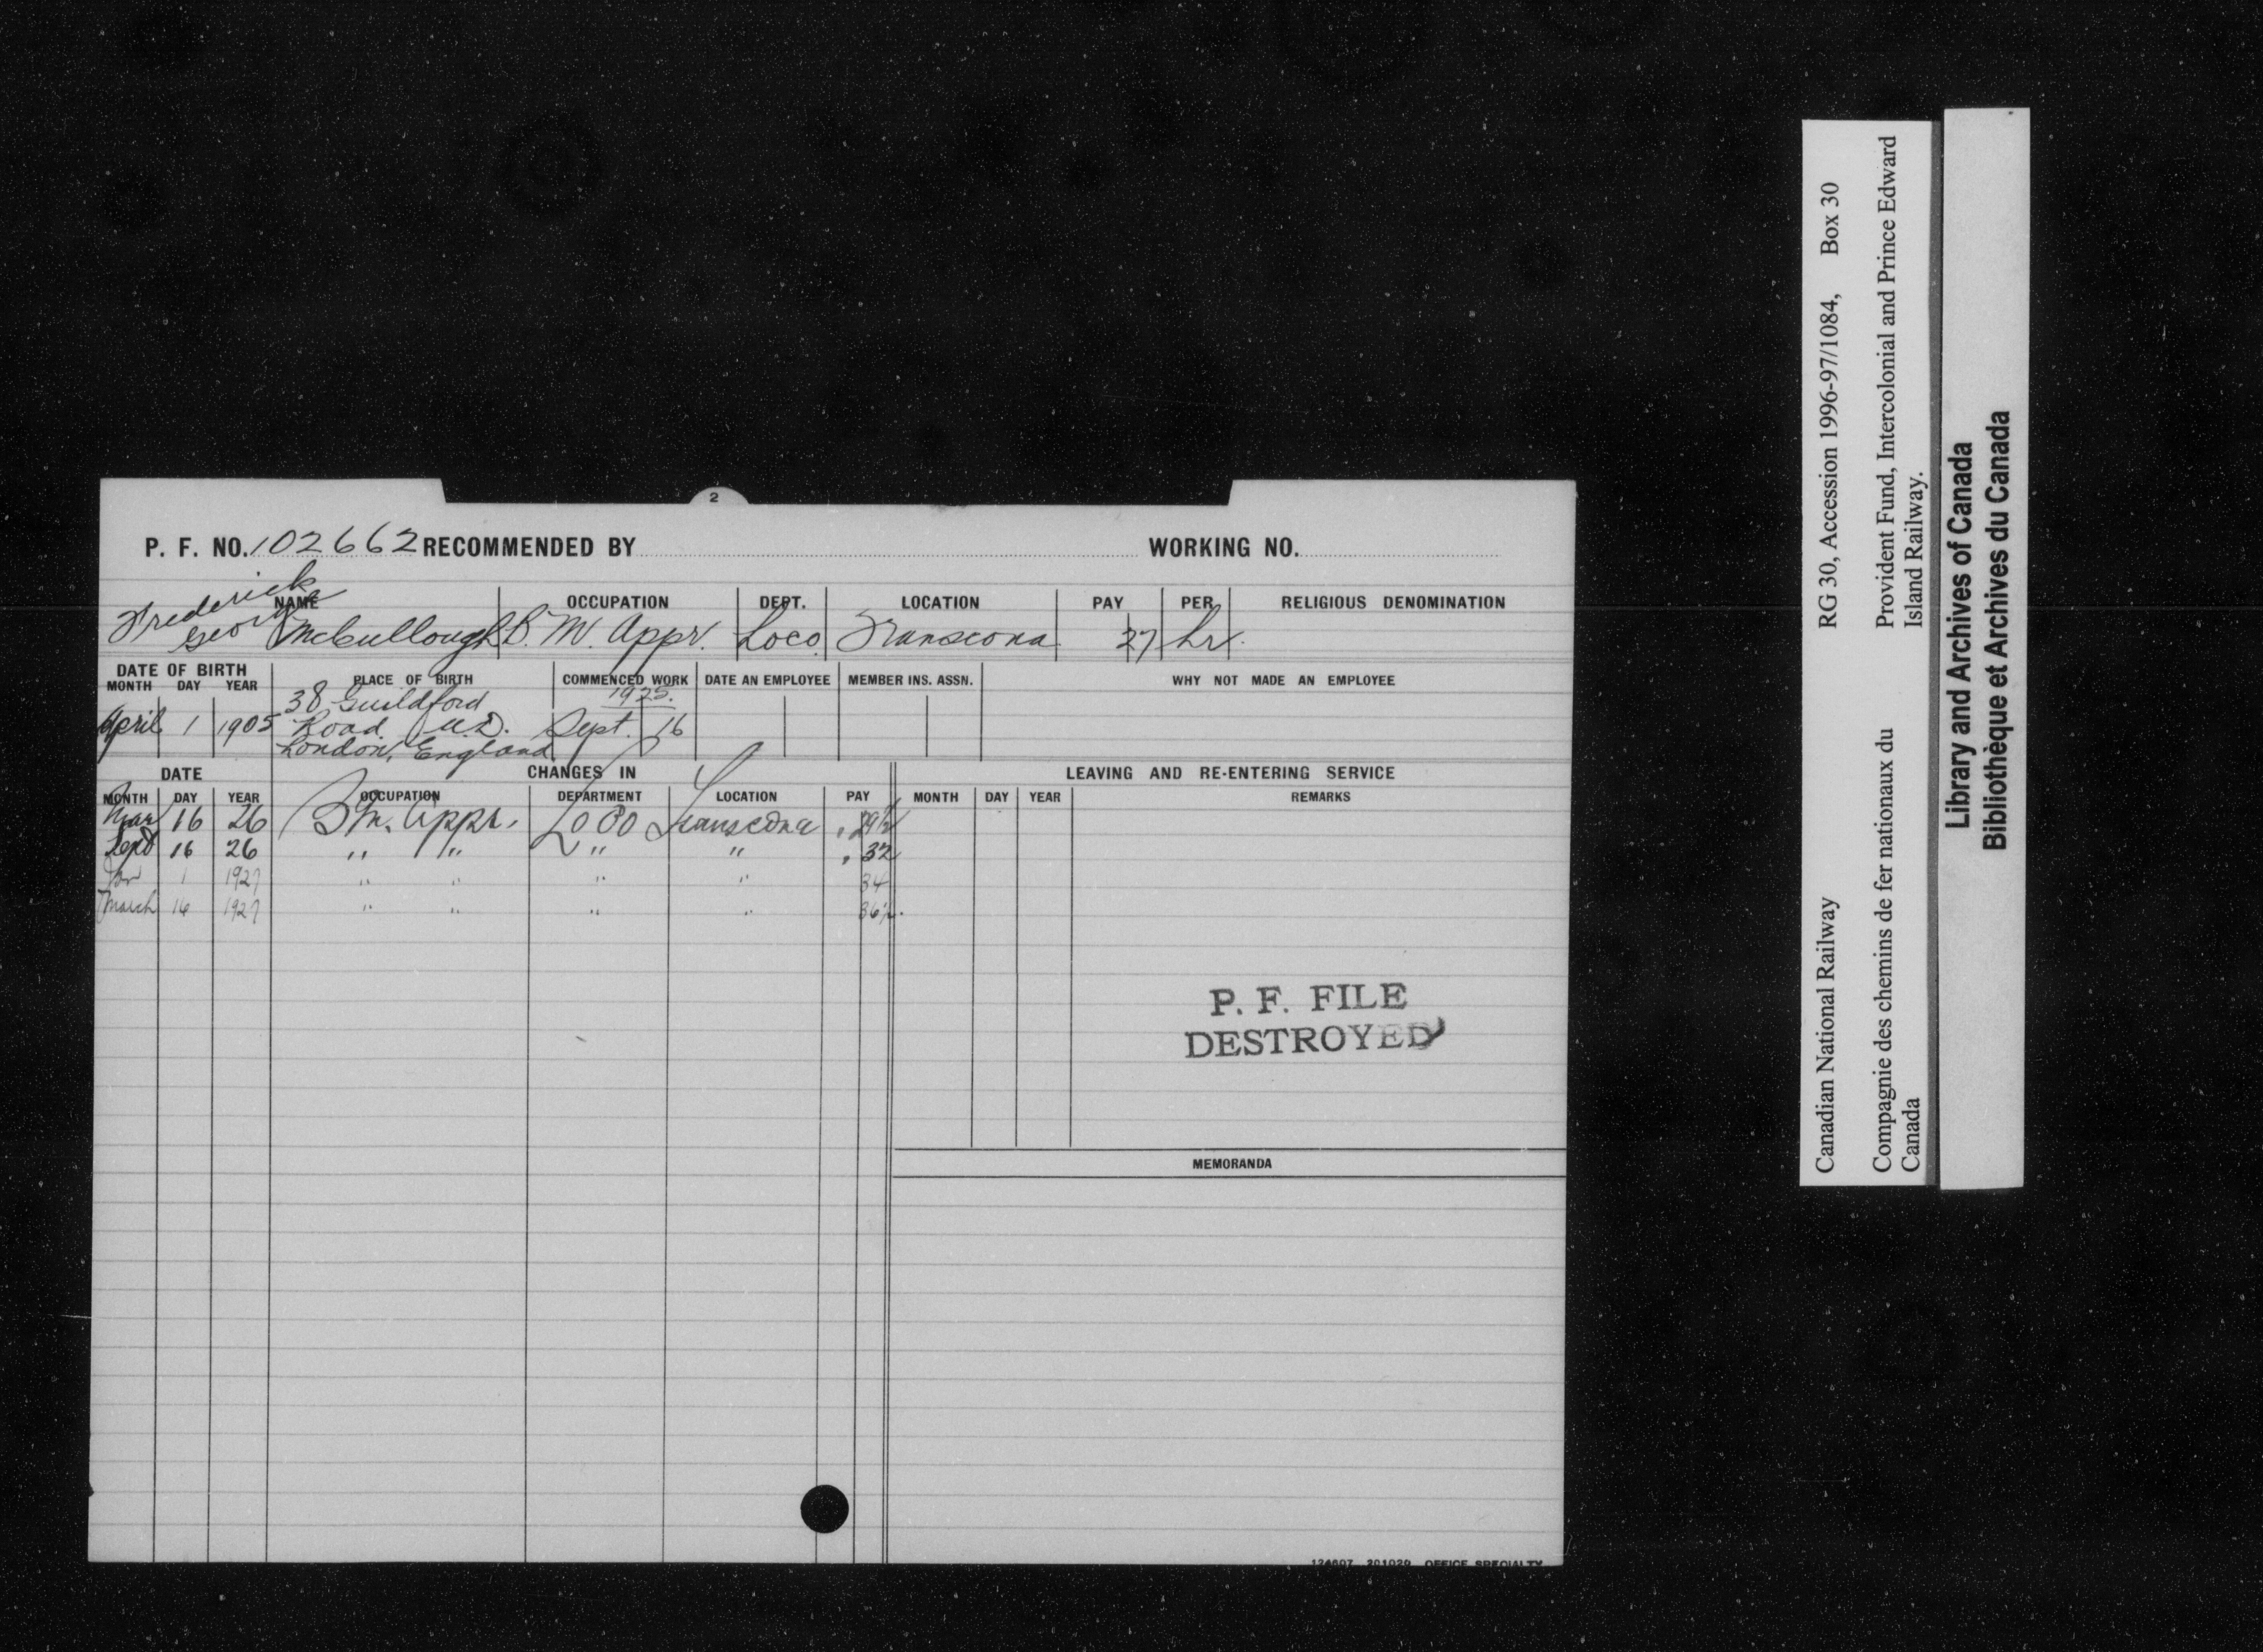 2
P. F. NO. 102662 RECOMMENDED BY WORKING NO.
NAME OCCUPATION DEPT. LOCATION PAY PER RELIGIOUS DENOMINATION
Frederick
George McCullough B. M. Appr. Loco Transcona 27 hr.
DATE OF BIRTH
MONTH DAY YEAR PLACE OF BIRTH COMMENCED WORK DATE AN EMPLOYEE MEMBER INS. ASSN. WHY NOT MADE AN EMPLOYEE
38 Guildford 1925.
April 1 1905 Road Sept. 16
London, England
DATE CHANGES IN LEAVING AND RE-ENTERING SERVICE
MONTH DAY YEAR OCCUPATION DEPARTMENT LOCATION PAY MONTH DAY YEAR REMARKS
Mar 16 26 B M. Appr. Loco Transcona . 29½
Sept 16 26 " " " " . 32
Jan 1 1927 " " " " 34
March 16 1927 " " " " 36½.
P. F. FILE
DESTROYED
MEMORANDA
124607 201020 OFFICE SPECIALTY
Canadian National Railway RG 30, Accession 1996-97/1084, Box 30
Compagnie des chemins de fer nationaux du Provident Fund, Intercolonial and Prince Edward
Canada Island Railway.
Library and Archives of Canada
Bibliothèque et Archives du Canada